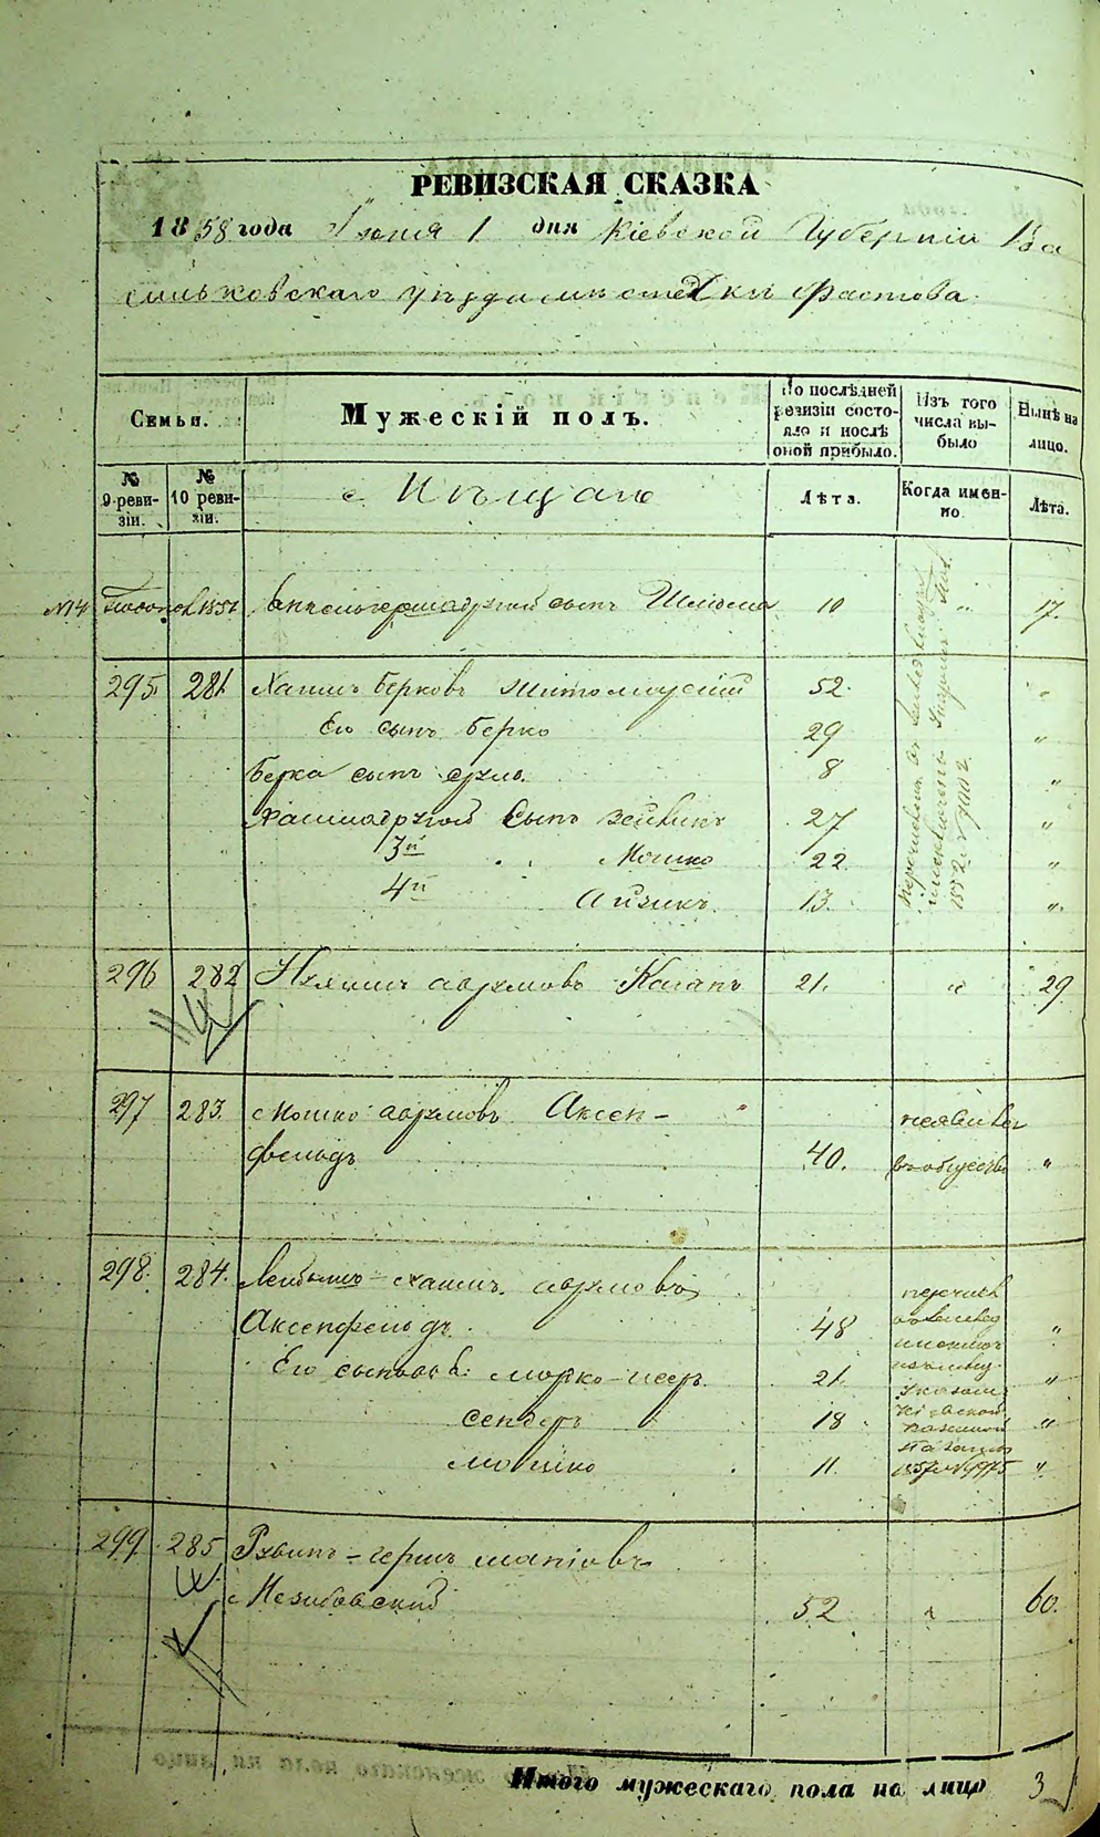 РЕВИЗСКАЯ СКАЗКА
1858 года Іюня 1 дня Кіевской Губерніи Ва
сильковскаго уѣзда мѣстечка Фастова.
Семьи.
Мужескій полъ.
По послѣдней ревизіи состояло и послѣ оной прибыло.
Изъ того числа выбыло
Нынѣ на лицо.
№ 9 ревизіи.
№ 10 ревизіи.
Мѣщане
Лѣта.
Когда именно
Лѣта.
№14 1851 другой сынъ Шліома 10 " 17.
295 281. Хаимъ Берковъ Житомирскій 52. "
Его сынъ Берко 29 "
Берка сынъ Сруль. 8 "
Хаима другой сынъ Зейвикъ 27 "
3й Мошко 22 "
4й Айзикъ. 13. "
296 282 Нухимъ Аврумовъ Каганъ 21. " 29.
297 283. Мошко Аврумовъ Аксен-
фельдъ 40. неявился въ общество "
298. 284. Лейбишъ-Хаимъ Аврумовъ
Аксенфельдъ. 48 "
Его сыновья: Морко-Исеръ. 21. "
Сендеръ 18 "
Мошко 11. "
299. 285 Рувинъ-Гершъ
52 " 60.
Итого мужескаго пола на лицо 3